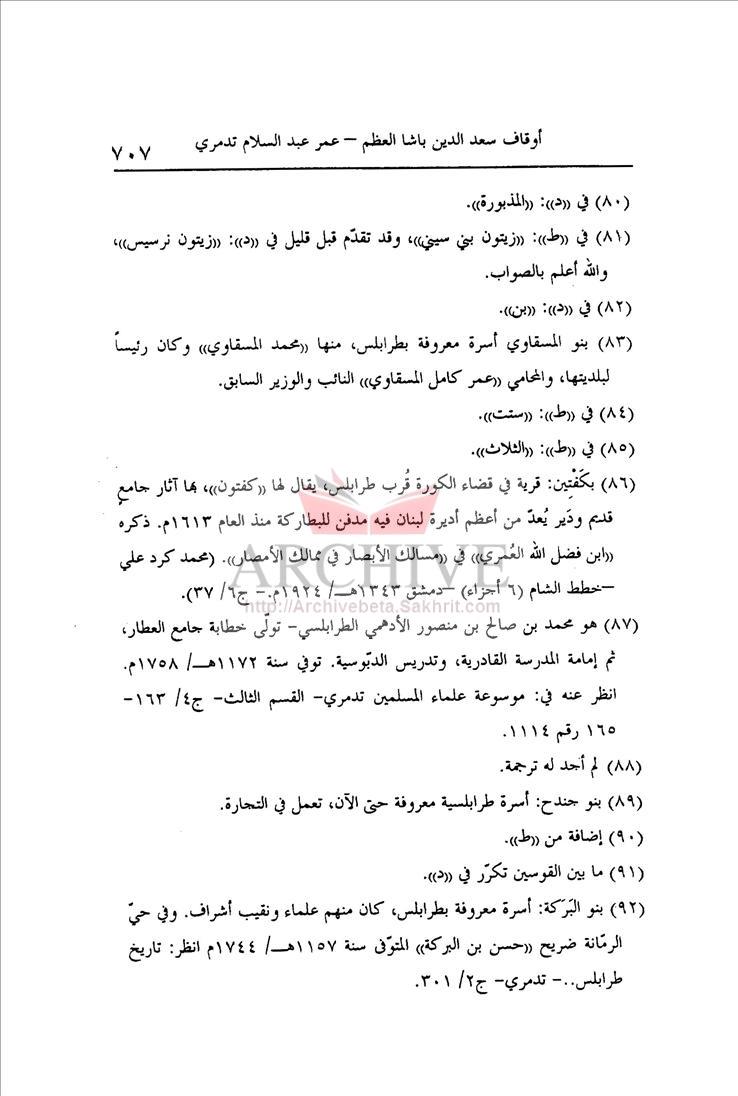 أوقاف سعد الدين باشا العظم – عمر عبد السلام تدمري ٧٠٧
(٨٠) في «د»: «المذبورة».
(٨١) في «ط»: «زيتون بني سيني»، وقد تقدّم قبل قليل في «د»: «زيتون نرسيس»،
والله أعلم بالصواب.
(٨٢) في «د»: «بن».
(٨٣) بنو المسقاوي أسرة معروفة بطرابلس، منها «محمد المسقاوي» وكان رئيساً
لبلديتها، والمحامي «عمر كامل المسقاوي» النائب والوزير السابق.
(٨٤) في «ط»: «ستت».
(٨٥) في «ط»: «الثلاث».
(٨٦) بكَفْتِين: قرية في قضاء الكورة قُرب طرابلس، يقال لها «كفتون»، بها آثار جامعٍ
قديم ودَير يُعدّ من أعظم أديرة لبنان فيه مدفن للبطاركة منذ العام ١٦١٣م. ذكره
«ابن فضل الله العُمري» في «مسالك الأبصار في ممالك الأمصار». (محمد كرد علي
ARCHIVE
–خطط الشام (٦ أجزاء) –دمشق ١٣٤٣هـ/ ١٩٢٤م.– ج٦/ ٣٧).
http://Archivebeta.Sakhrit.com
(٨٧) هو محمد بن صالح بن منصور الأدهمي الطرابلسي– تولّى خطابة جامع العطار،
ثم إمامة المدرسة القادرية، وتدريس الدبّوسية. توفي سنة ١١٧٢هـ/ ١٧٥٨م.
انظر عنه في: موسوعة علماء المسلمين تدمري– القسم الثالث– ج٤/ ١٦٣–
١٦٥ رقم ١١١٤.
(٨٨) لم أجد له ترجمة.
(٨٩) بنو جندح: أسرة طرابلسية معروفة حتى الآن، تعمل في التجارة.
(٩٠) إضافة من «ط».
(٩١) ما بين القوسين تكرّر في «د».
(٩٢) بنو البَرَكة: أسرة معروفة بطرابلس، كان منهم علماء ونقيب أشراف. وفي حيّ
الرمّانة ضريح «حسن بن البركة» المتوّفى سنة ١١٥٧هـ/ ١٧٤٤م انظر: تاريخ
طرابلس..– تدمري– ج٢/ ٣٠١.